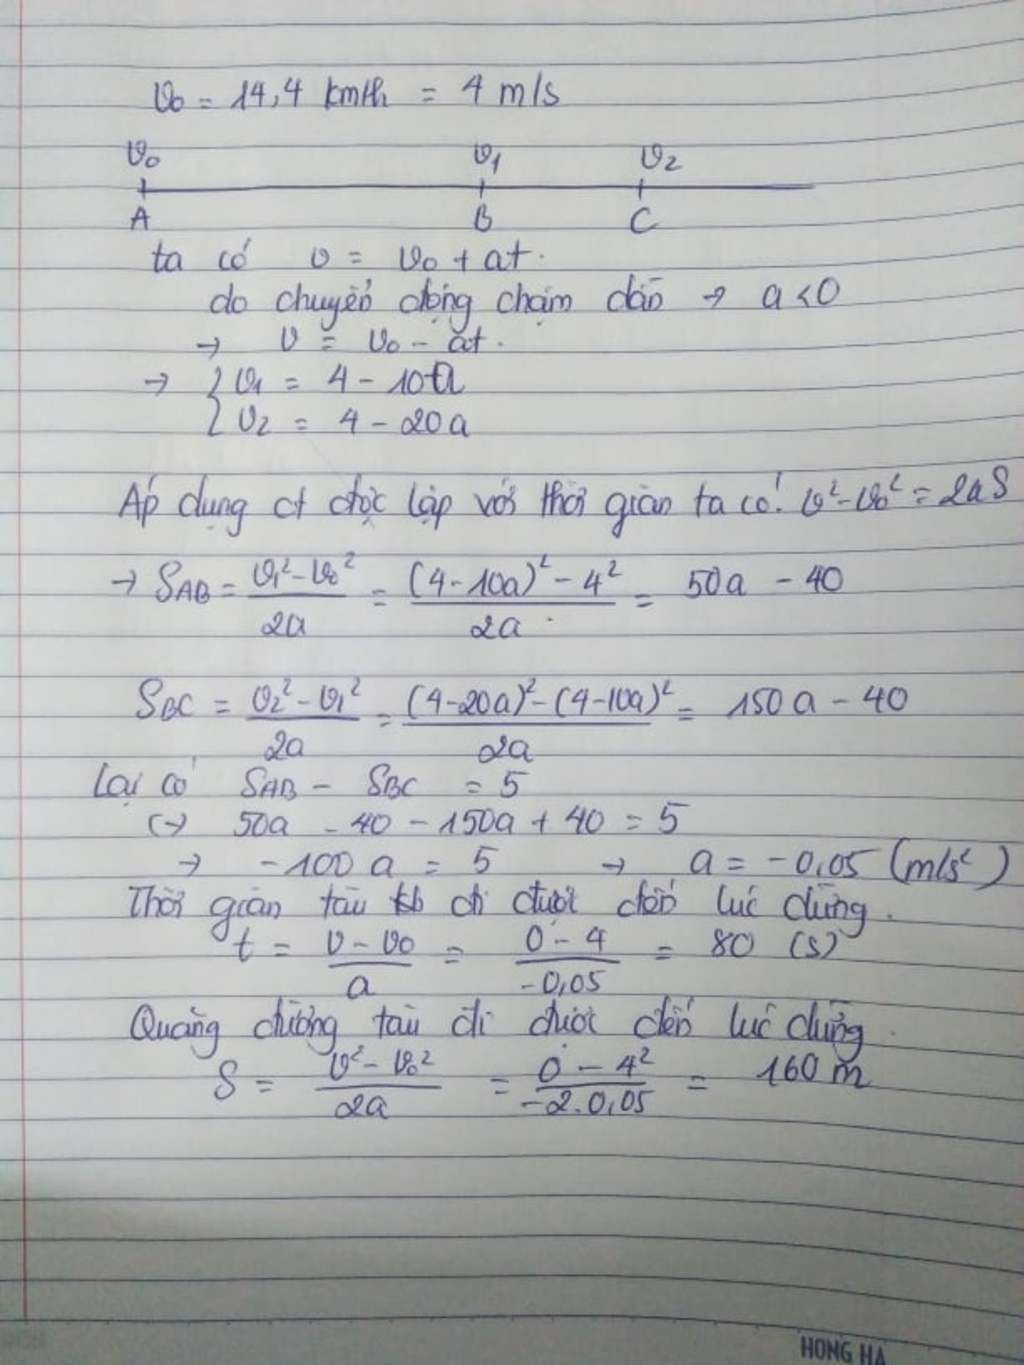 v₀ = 14,4 km/h = 4 m/s
v₀ v₁ v₂
A B C
ta có v = v₀ + at.
do chuyển động chậm dần → a < 0
→ v = v₀ - at.
→ { v₁ = 4 - 10a
{ v₂ = 4 - 20a
Áp dụng ct độc lập với thời gian ta có: v² - v₀² = 2aS
→ S_AB = (v₁² - v₀²)/2a = ((4 - 10a)² - 4²)/2a = 50a - 40
S_BC = (v₂² - v₁²)/2a = ((4 - 20a)² - (4 - 10a)²)/2a = 150a - 40
Lại có S_AB - S_BC = 5
(→) 50a - 40 - 150a + 40 = 5
→ -100a = 5 → a = -0,05 (m/s²)
Thời gian tàu đi được đến lúc dừng.
t = (v - v₀)/a = (0 - 4)/-0,05 = 80 (s)
Quãng đường tàu đi được đến lúc dừng.
S = (v² - v₀²)/2a = (0 - 4²)/-2.0,05 = 160 m
HONG HA